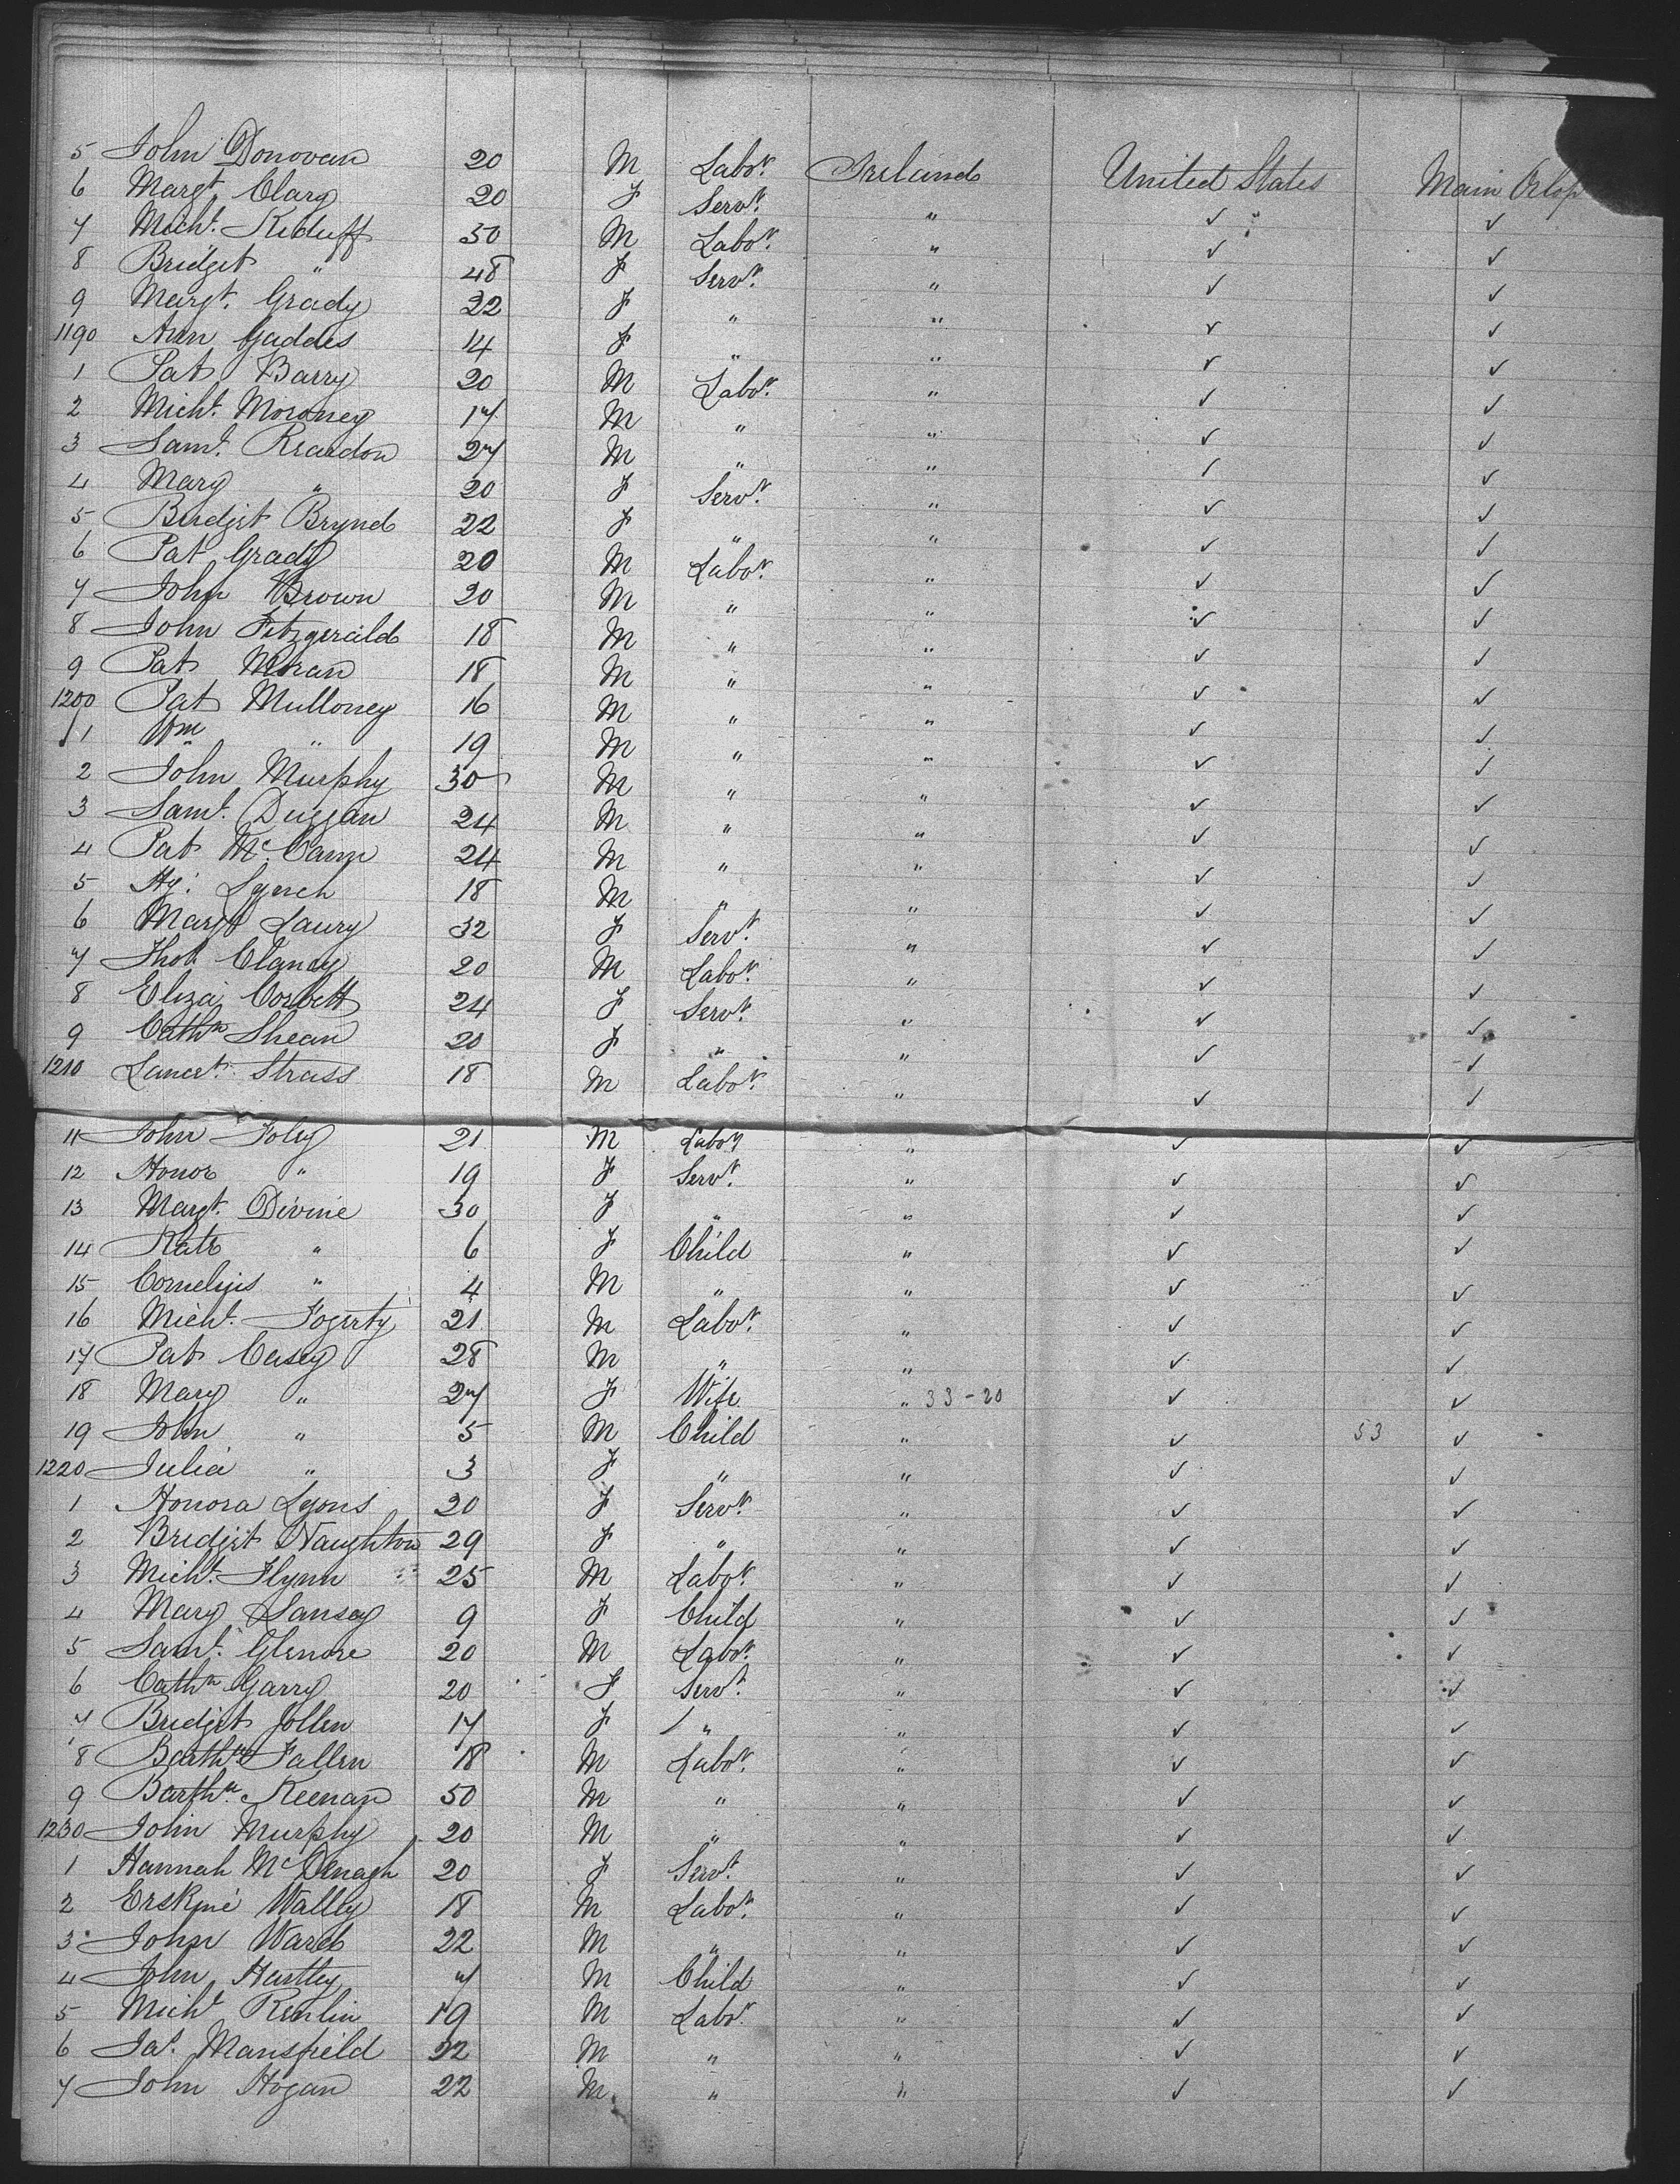 5 John Donovan 20 M Labor. Ireland United States Main Orlop
6 Margt. Clary 20 F Servt. " ✓ " ✓
7 Michl. Kiduff 50 M Labor. " ✓ ✓
8 Bridget " 48 F Servt. " ✓ ✓
9 Margt. Grady 22 F " " ✓ ✓
1190 Ann Gaddes 14 F " " ✓ ✓
1 Pat Barry 20 M Labor. " ✓ ✓
2 Michl. Moroney 17 M " " ✓ ✓
3 Saml. Reardon 27 M " " ✓ ✓
4 Mary " 20 F Servt. " ✓ ✓
5 Bridget Brynd 22 F " " ✓ ✓
6 Pat Grady 20 M Labor. " ✓ ✓
7 John Brown 20 M " " ✓ ✓
8 John Fitzgerald 18 M " " ✓ ✓
9 Pat Moran 18 M " " ✓ ✓
1200 Pat Mulloney 16 M " " ✓ ✓
1 Wm " 19 M " " ✓ ✓
2 John Murphy 30 M " " ✓ ✓
3 Saml. Duggan 24 M " " ✓ ✓
4 Pat McCann 24 M " " ✓ ✓
5 Hy. Lynch 18 M " " ✓ ✓
6 Margt Laury 32 F Servt. " ✓ ✓
7 Thos. Clancy 20 M Labor. " ✓ ✓
8 Eliza Corbett 24 F Servt. " ✓ ✓
9 Cathn Shean 20 F " " ✓ ✓
1210 Strass 18 M Labor. " ✓ ✓
11 John Foley 21 M Labor " ✓ ✓
12 Honor " 19 F Servt. " ✓ ✓
13 Margt. Divine 30 F " " ✓ ✓
14 Kate " 6 F Child " ✓ ✓
15 Cornelius " 4 M " " ✓ ✓
16 Michl. Fogerty 21 M Labor. " ✓ ✓
17 Pat Casey 28 M " " ✓ ✓
18 Mary " 27 F Wife " 33-20 ✓ ✓
19 John " 5 M Child " ✓ 53 ✓
1220 Julia " 3 F " " ✓ ✓
1 Honora Lyons 20 F Servt. " ✓ ✓
2 Bridget Naughton 29 F " " ✓ ✓
3 Michl. Flynn 25 M Labor. " ✓ ✓
4 Mary Sansey 9 F Child " ✓ ✓
5 Saml. Glenore 20 M Labor. " ✓ ✓
6 Cathn Garry 20 F Servt. " ✓ ✓
7 Bridget Jollen 17 F " " ✓ ✓
8 Barthw Fallen 18 M Labor. " ✓ ✓
9 Barthw. Keenan 50 M " " ✓ ✓
1230 John Murphy 20 M " " ✓ ✓
1 Hannah McDenagh 20 F Servt. " ✓ ✓
2 Erskine Walley 18 M Labor. " ✓ ✓
3 John Ward 22 M " " ✓ ✓
4 John Hartley 7 M Child " ✓ ✓
5 Michl Renlin 19 M Labor. " ✓ ✓
6 Jas. Mansfield 22 M " " ✓ ✓
7 John Hogan 22 M " " ✓ ✓